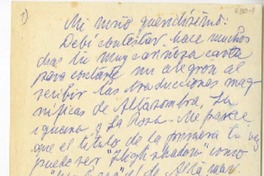 1)
Mi niño queridísimo:
Debí contestar hace muchos
días tu muy cariñosa carta
para contarte mi alegrón al
recibir las traducciones mag-
níficas de Altasombra, La
Higuera y La Rosa. Me parece
que el título de la primera
puede ser "Highshadow" como
de Altamar